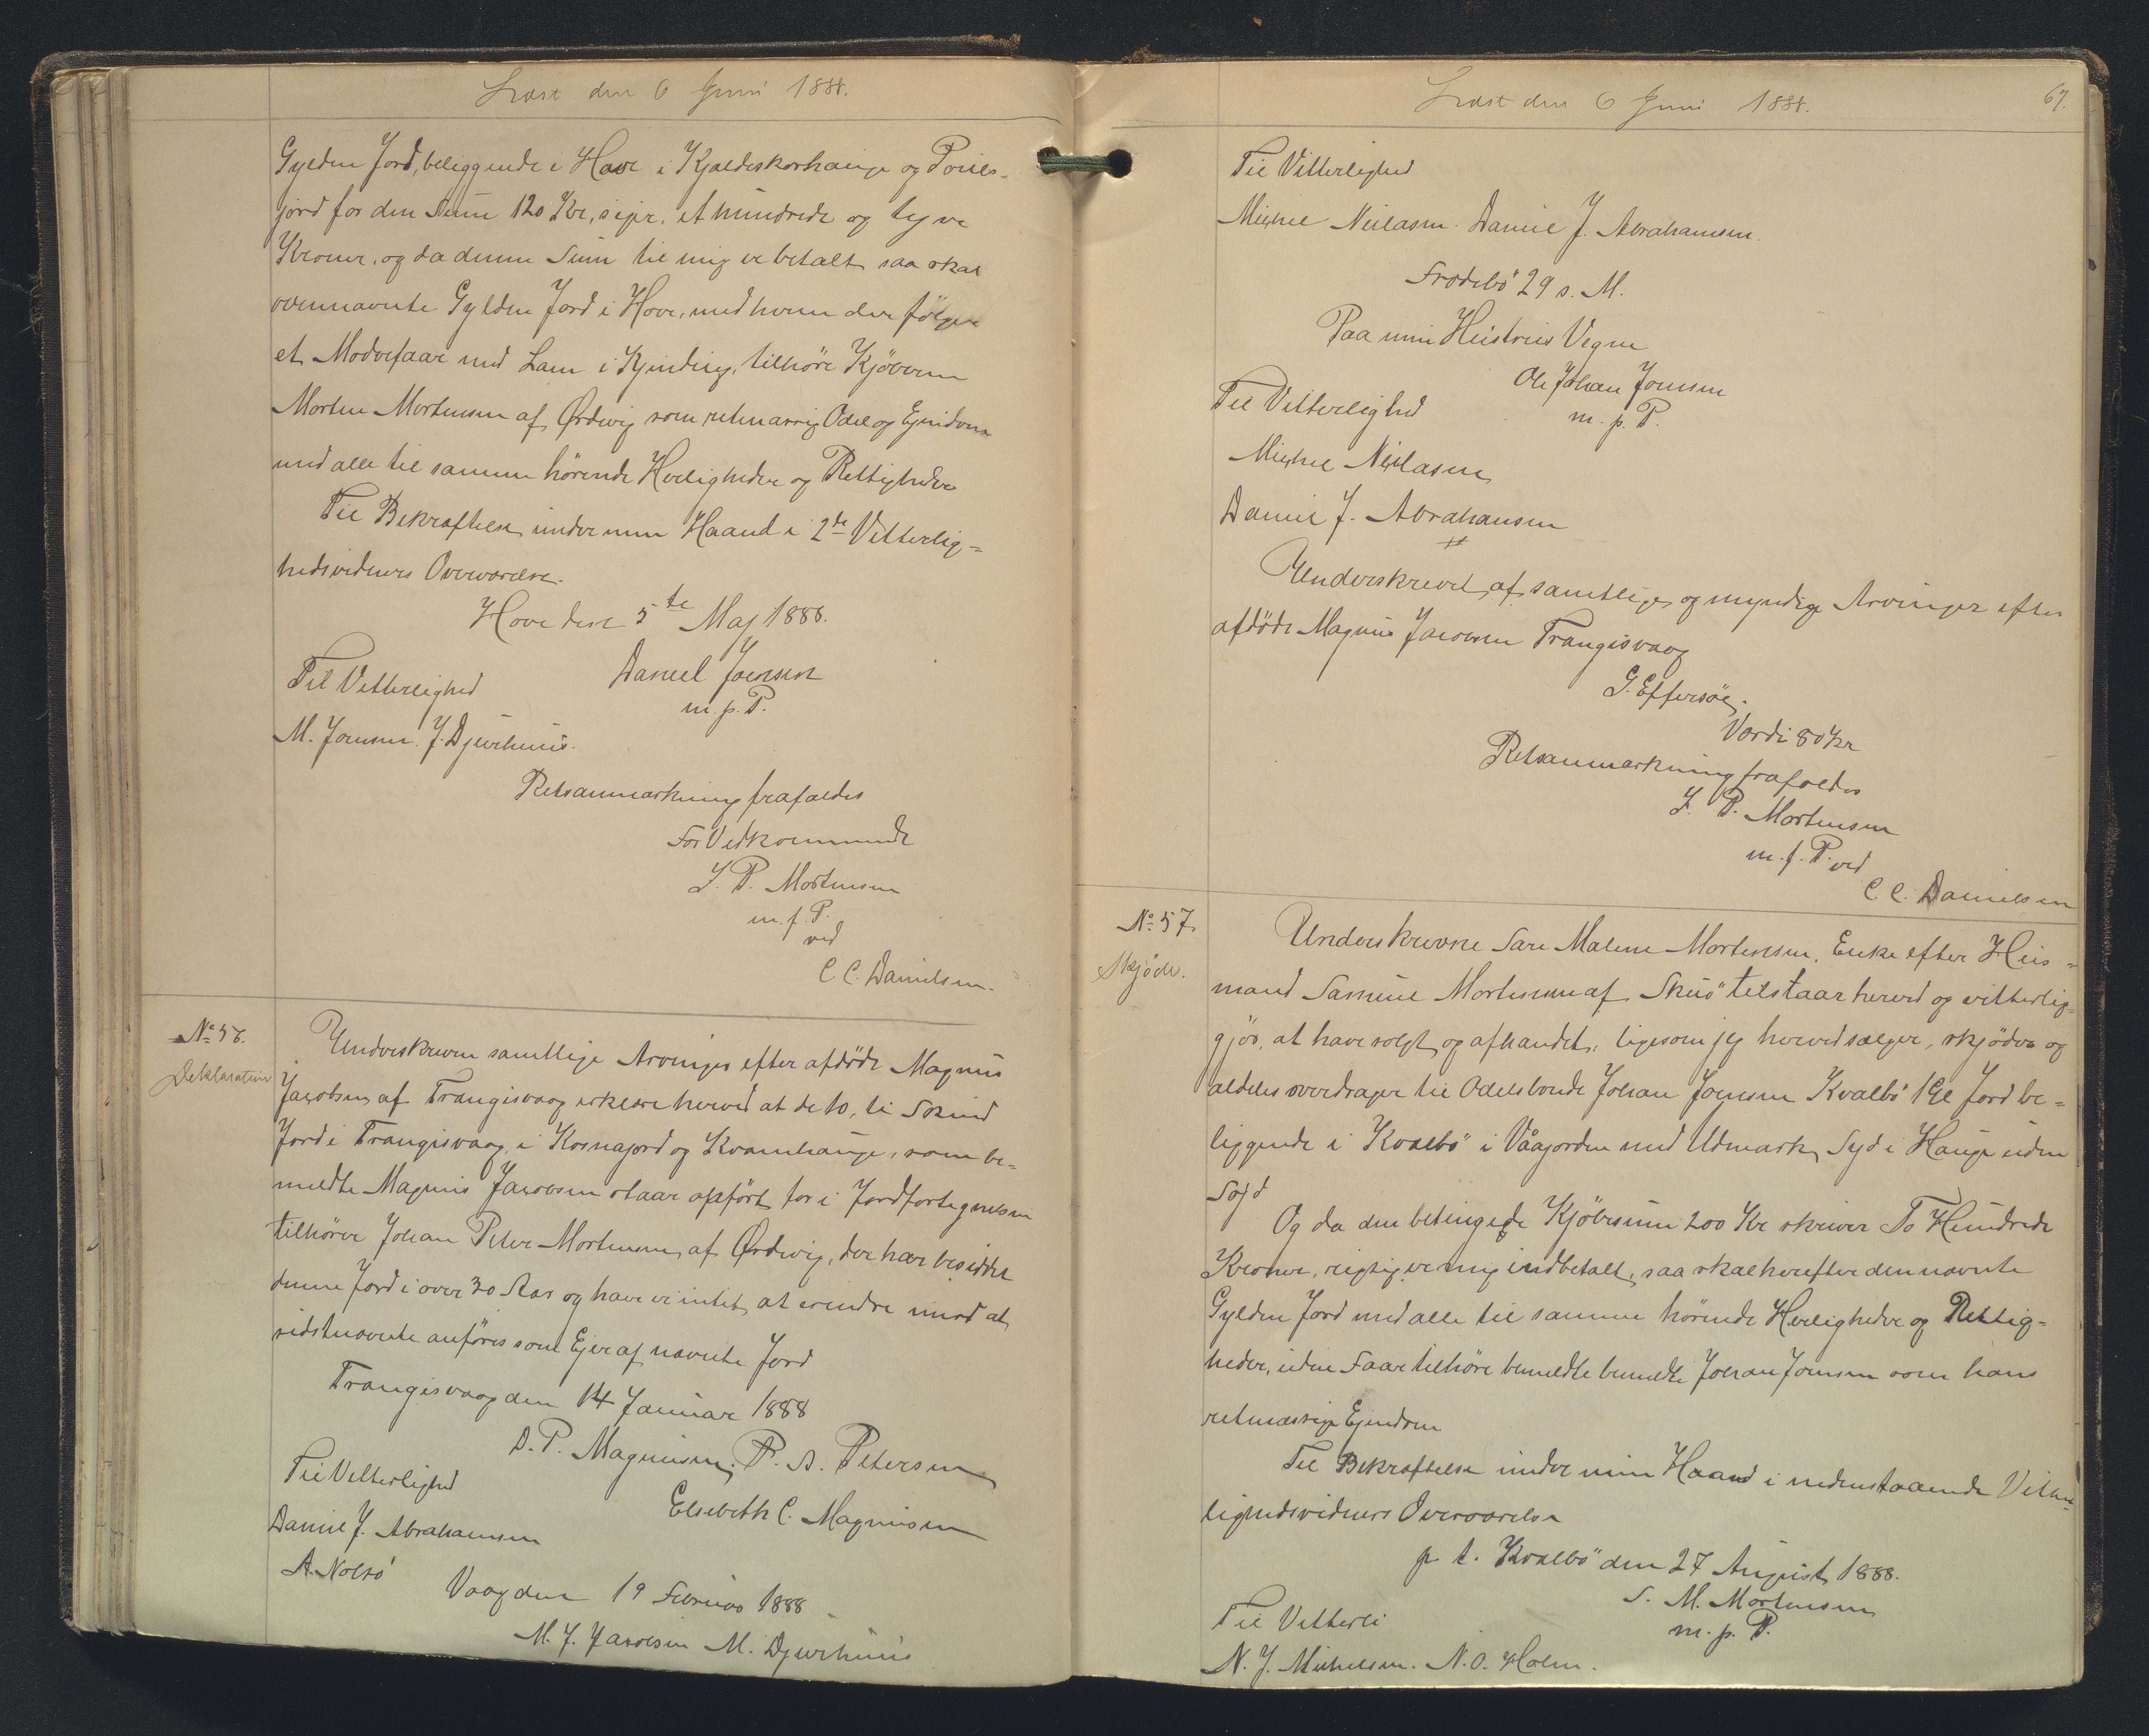 Læst den 6 Juni 1888.
Gylden Jord, beliggende i Hove i Kjældeskorhauge og Poüls-
jord for den Sum 120 Kr, sigr. et hundrede og tyve
Kroner, og da denne Sum til mig er betalt saa skal
ovennævnte Gylden Jord i Hove, med hvem der følger
et Moderfaar med Lam i Kjinding, tilhøre Kjøberen
Morten Mortensen af Ørdevig som retmæssig Odel og Ejendom
med alle til samme hørende Herligheder og Rettigheder
Til Bekræftelse under min Haand i 2de Vitterlig-
hedsvidners Overværelse.
Hove den 5te Maj 1888.
Til Vitterlighed
Daniel Joensen
m. p. P.
M. Joensen. J. Djurhuus.
Retsanmærkning frafaldes
For Vedkommende
J. P. Mortensen
m. f. P.
ved
C. C. Danielsen.
No 56.
Deklaration
Underskreven samtlige Arvinger efter afdøde Magnus
Jacobsen af Trangisvaag erklære herved at de 10, ti Skind
Jord i Trangisvaag, i Kornajord og Kvamhauge, som be-
meldte Magnus Jacobsen staar opført for i Jordfortegnelsen
tilhører Johan Peter Mortensen af Ørdevig, der har besiddet
denne Jord i over 30 Aar og have vi intet at erindre imod at
sidstnævnte anføres som Ejer af nævnte Jord
Trangisvaag den 14 Januar 1888
D. P. Magnusen, P. A. Petersen
Til Vitterlighed
Elsebeth C. Magnusen
Daniel J. Abrahamsen
A. Nolsø
Vaag den 19 Februar 1888
M. J. Jacobsen M. Djurhuus
Læst den 6 Juni 1888.
67.
Til Vitterlighed
Michael Neilasen. Daniel J. Abrahamsen.
Frodebø 29 s. M.
Paa min Hustrus Vegne
Ole Johan Joensen
m. p. P.
Til Vitterlighed
Michael Neilasen
Daniel J. Abrahamsen
Underskrevet af samtlige og myndige Arvinger efter
afdøde Magnus Jacobsen Trangisvaag
G. Effersøe.
Værdi 80 Kr
Retsanmærkning frafaldes
J. P. Mortensen
m. f. P. ved
C. C. Danielsen
No 57.
Skjøde.
Underskrevne Sare Malene Mortensen, Enke efter Hus-
mand Samuel Mortensen af Skuø tilstaar herved og vitterlig-
gjør, at have solgt og afhændet, ligesom jeg herved sælger, skjøder og
aldeles overdrager til Odelsbonde Johan Joensen Kvalbø 1 Gl Jord be-
liggende i Kvalbø i Våagorden med Udmark Syd i Hauge uden
Sojd
Og da den betingede Kjøbesum 200 Kr skriver To Hundrede
Kroner, rigtig er mig indbetalt, saa skal herefter den nævnte
Gylden Jord med alle til samme hørende Herligheder og Rettig-
heder, uden Faar tilhøre bemeldte bemeldte Johan Joensen som hans
retmæssige Ejendom
Til Bekræftelse under min Haand i nedenstaaende Vitter-
lighedsvidners Overværelse
p. t. Kvalbø den 27 August 1888.
S. M. Mortensen
m. p. P.
Til Vitterli
N. J. Michelsen. N. O. Holm.